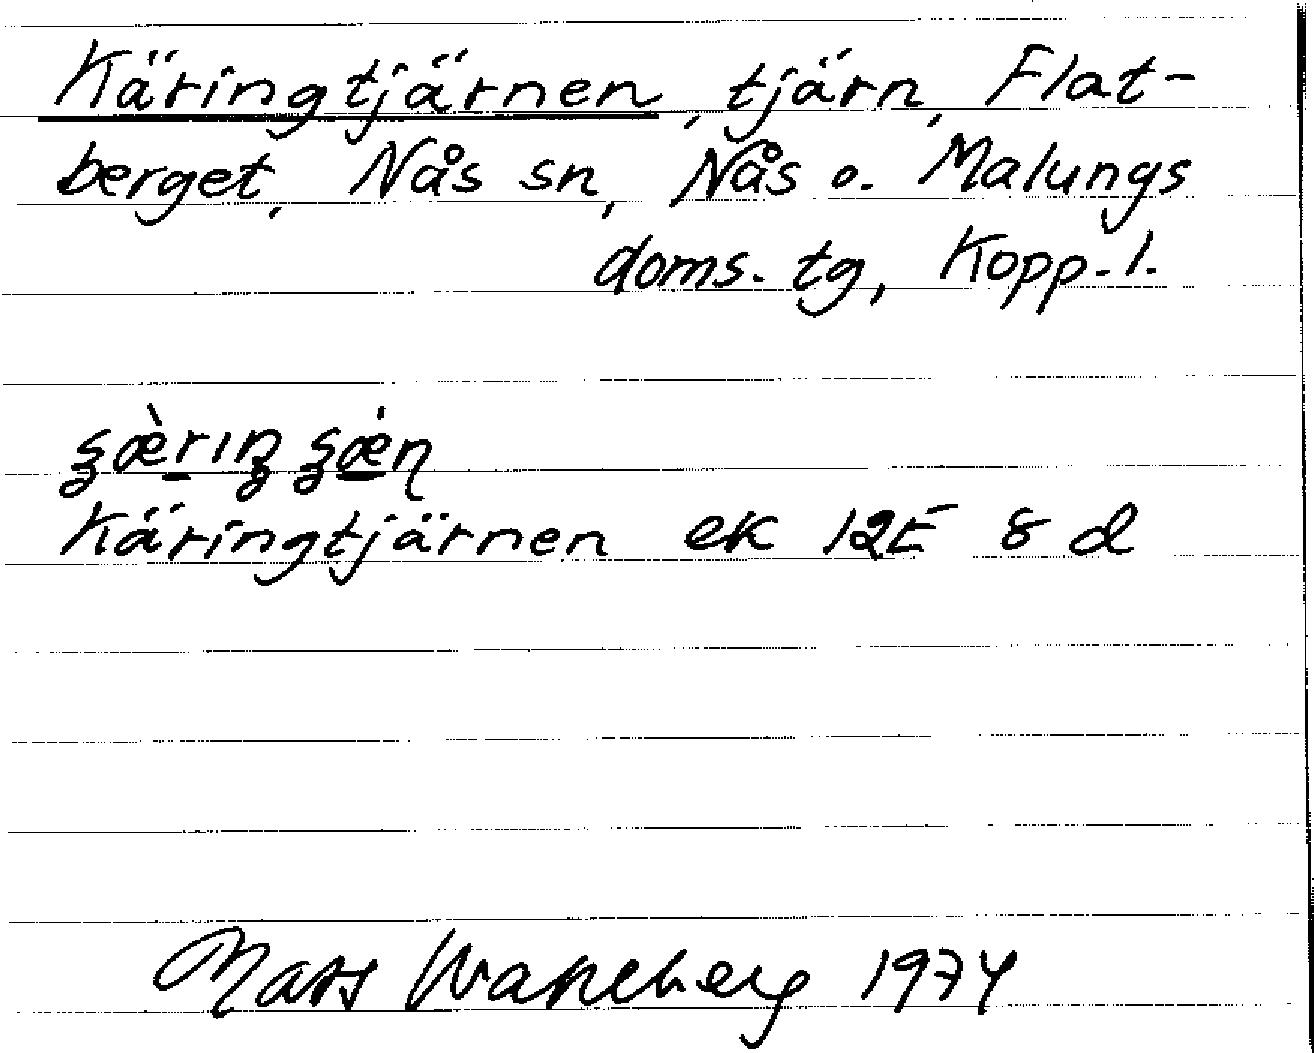 Käringtjärnen, tjärn, Flat-
berget, Nås sn, Nås o. Malungs
doms. tg, Kopp. l.
Käringtjärnen ek 12E 8 d
Mats 1974